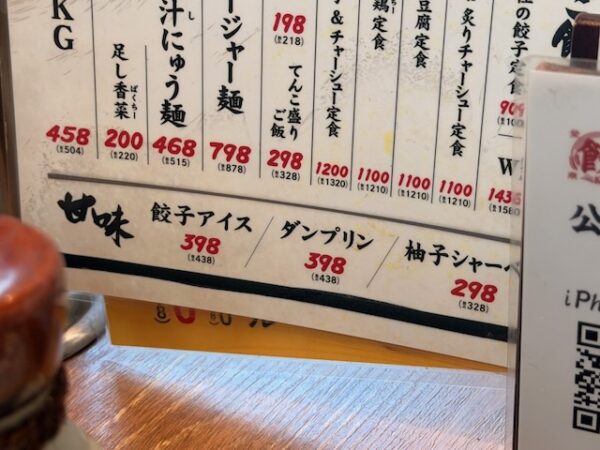 KG
458
(税504)
足し香菜
ぱくちー
200
(税220)
汁にゅう麺
し
468
(税515)
ージャー麺
798
(税878)
198
(税218)
てんこ盛り
ご飯
298
(税328)
＆チャーシュー定食
1200
(税1320)
鶏定食
1100
(税1210)
豆腐定食
1100
(税1210)
炙りチャーシュー定食
1100
(税1210)
の餃子定食
909
W
1436
甘味
餃子アイス
398
(税438)
ダンプリン
398
(税438)
柚子シャーベ
298
(税328)
公
iPh